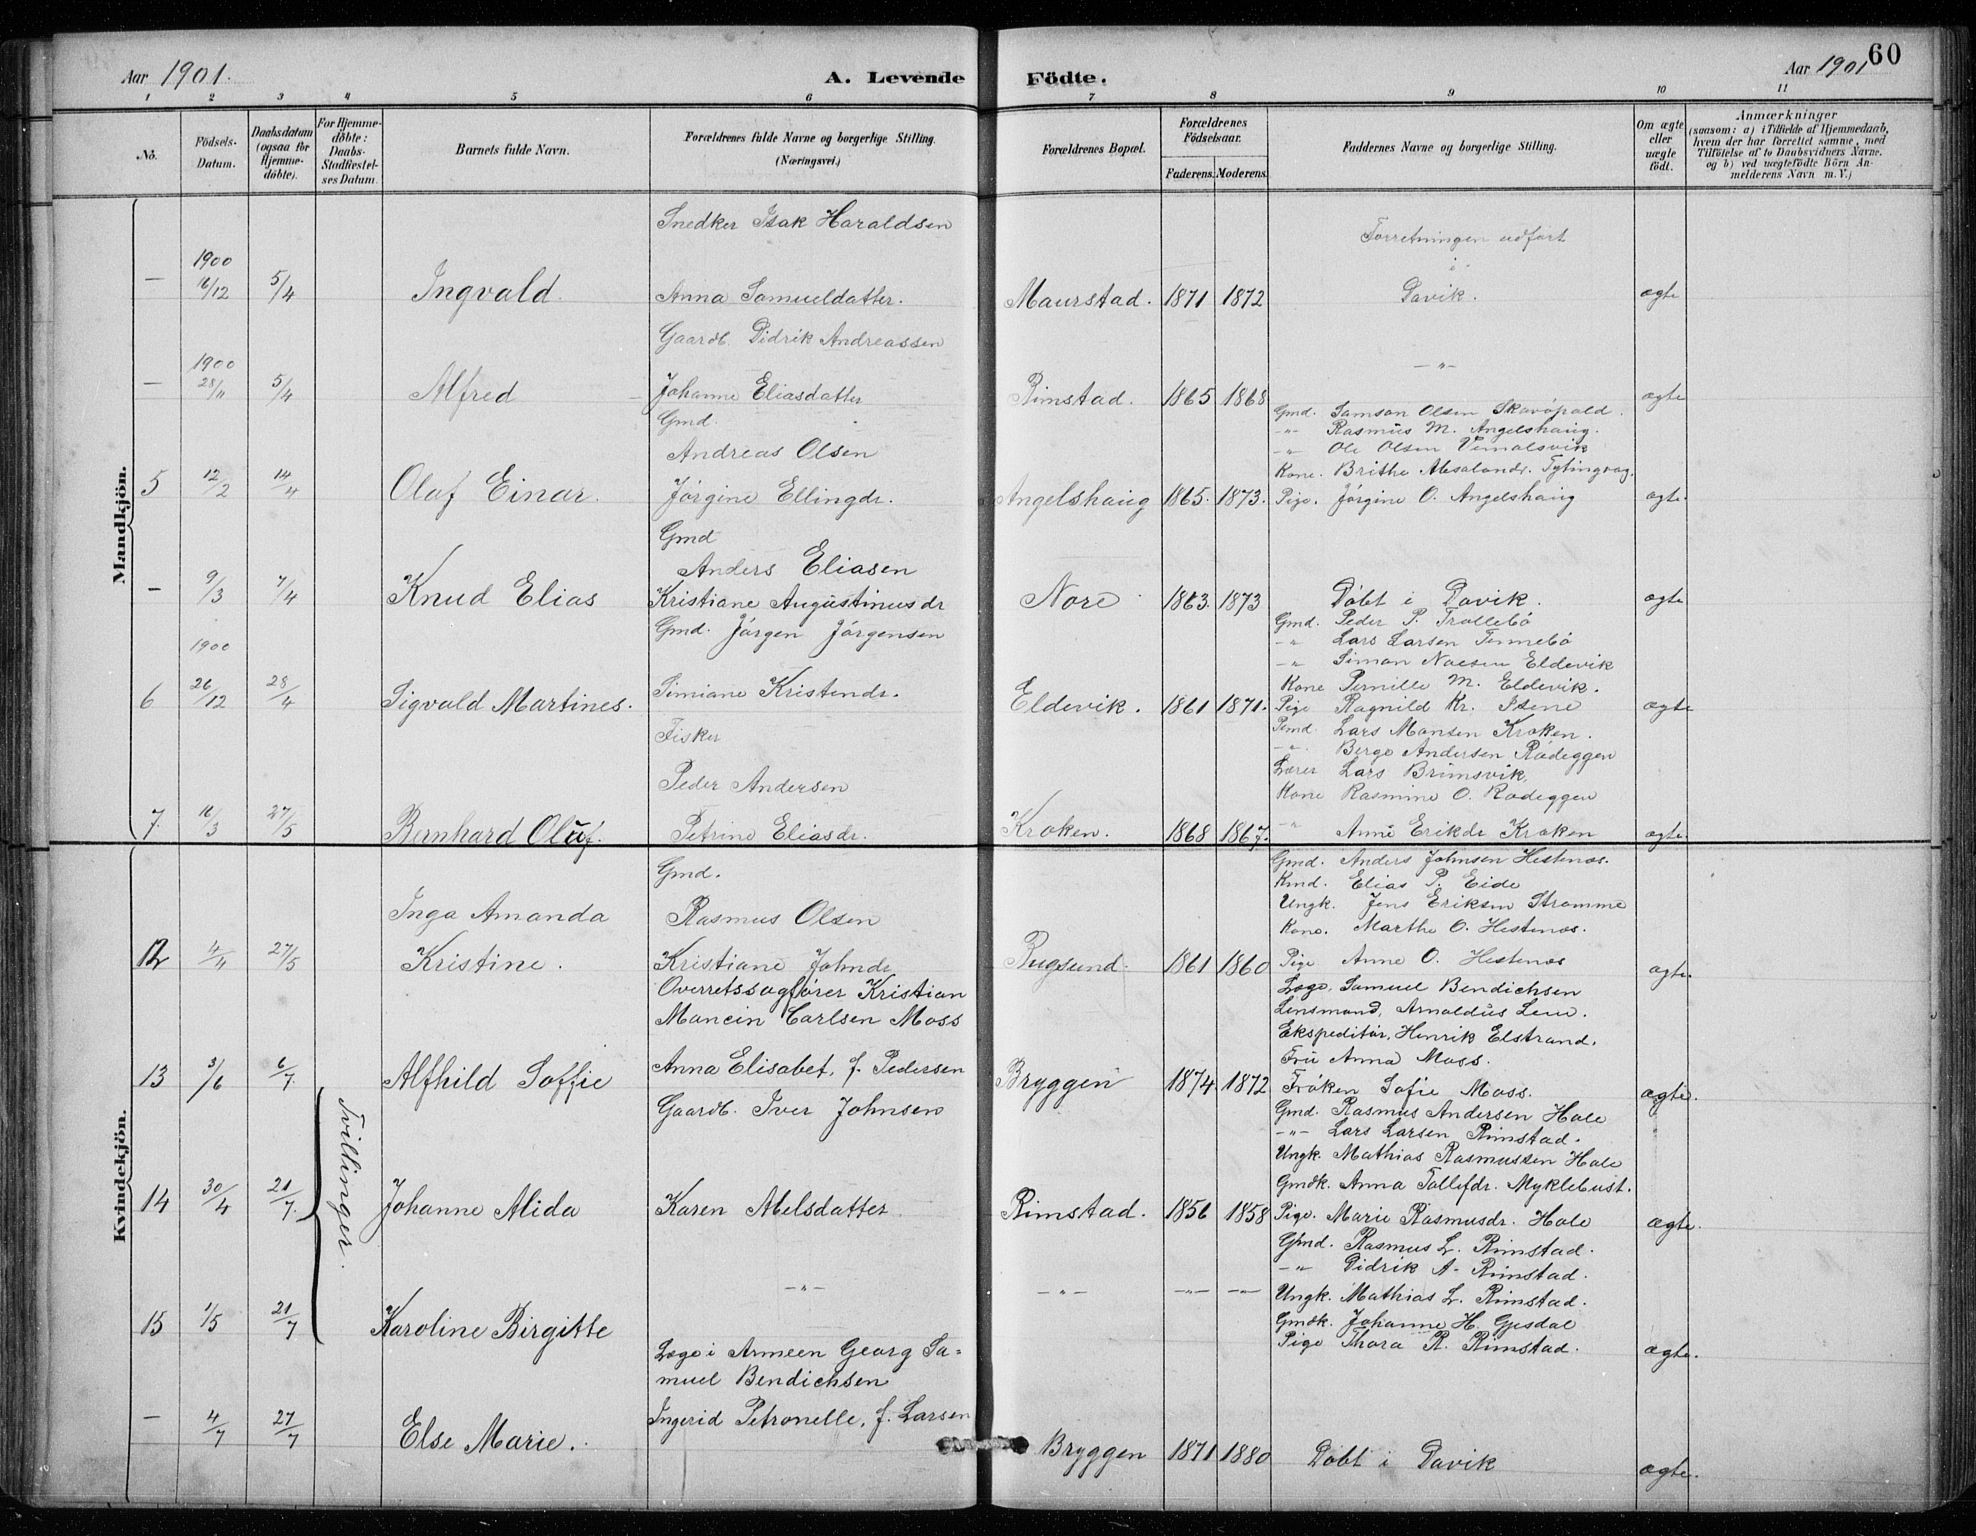 Aar 1901.
A. Levende
Födte.
Aar 1901
60
1 2 3 4 5 6 7 8 9 10 11
No.
Födsels-
Datum.
Daabsdatum
(ogsaa for
Hjemme-
döbte).
For Hjemme-
döbte:
Daabs-
Stadfestel-
ses Datum.
Barnets fulde Navn.
Forældrenes fulde Navne og borgerlige Stilling.
(Næringsvei.)
Forældrenes Bopæl.
Forældrenes
Födselsaar.
Faderens. Moderens.
Faddernes Navne og borgerlige Stilling.
Om ægte
eller
uægte
födt.
Anmærkninger
(saasom: a) i Tilfælde af Hjemmedaab,
hvem der har forrettet samme, med
Tilföielse af to Daabsvidners Navne.
og b) ved uægtefödte Börn An-
melderens Navn m.V.)
Mandkjön.
Snedker Isak Haraldsen
Forretningen udført
1900
i
— 16/12 5/4 Ingvald. Anna Samueldatter. Maurstad. 1871 1872 Davik. ægte
Gaardb. Didrik Andreassen
1900
—„—
— 28/11 5/4 Alfred Johanne Eliasdatter Rimstad. 1865 1868 ægte
Gmd.
Gmd. Samson Olsen
-„- Rasmus M. Angelshaug.
Andreas Olsen
-„- Ole Olsen
Kone. Brithe
5 12/2 14/4 Olaf Einar. Jörgine Ellingdr. Angelshaug 1865. 1873. Pige. Jörgine O. Angelshaug ægte.
Gmd
Anders Eliasen
— 9/3 7/4 Knud Elias Kristiane Augustinusdr Nore 1863. 1873 Döbt i Davik. ægte
Gmd. Jörgen Jörgensen
Gmd. Peder P. Trollebö
-„- Lars Larsen Tennebö
1900
-„- Simon Eldevik
Kone Pernille M. Eldevik.
6 26/12 28/4 Sigvald Martines. Simiane Kristendr. Eldevik. 1861 1871. Pige Ragnild Kr. ægte
Fisker
Lars Monsen Kroken.
-„- Berge Andersen Rödeggen
Peder Andersen
Lærer Lars Brimsvik.
Kone Rasmine O. Rödeggen
7. 16/3 27/5 Bernhard Oluf. Petrine Eliasdr. Kroken. 1868 1867. -„- Anne Erikdr Kroken ægte.
Kvindekjön.
Gmd.
Gmd. Anders Johnsen Hestenæs.
Kmd. Elias P. Eide
Inga Amanda Rasmus Olsen
Ungk. Jens Eriksen Strømme
Kone. Marthe O. Hestenæs.
12 4/11 27/5 Kristine. Kristiane Johndr Rugsund. 1861 1860 Pige Anne O. Hestenæs ægte.
Overretssagförer Kristian
Mancin Carlsen Moss
Læge, Samuel Bendichsen
Lensmand, Arnoldus Lem.
Ekspeditör, Henrik Elstrand.
Fru Anna Moss.
13 3/6 6/7 Alfhild Soffie Anna Elisabet, f. Pedersen Bryggen 1874 1872 Fröken Sofie Moss. ægte.
Gaardb. Iver Johnsen
Gmd. Rasmus Andersen Hole
-„- Lars Larsen Rimstad.
Ungk. Mathias Rasmussen Hole
Gmdk. Anna Tollefdr. Myklebust.
Tvillinger.
14 30/4 21/7 Johanne Alida Karen Abelsdatter Rimstad. 1856 1858 Pige. Marie Rasmusdr. Hole ægte.
Gmd. Rasmus L. Rimstad.
-„- Didrik A. Rimstad.
-„- -„- -„- -„- Ungk. Mathias L. Rimstad.
Gmdk. Johanne H. Gjesdal
15 1/5 21/7 Karoline Birgitte Pige Thora R. Rimstad. ægte.
Læge i Armeen Georg Sa-
muel Bendichsen
— 4/7 27/7 Else Marie. Ingerid Petronelle, f. Larsen Bryggen 1871 1880 Döbt i Davik ægte.